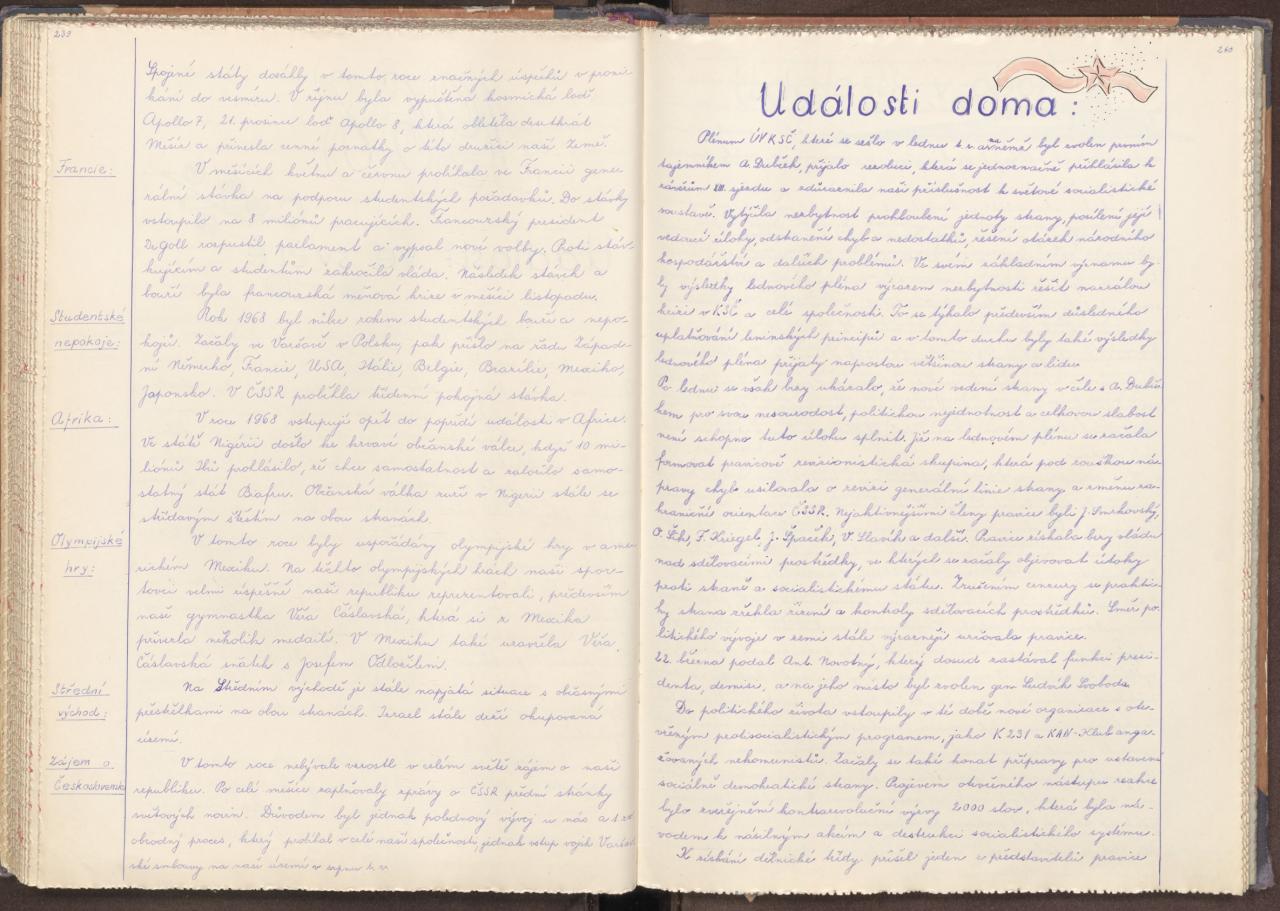 239
Spojené státy dosáhly v tomto roce značných úspěchů v proni-
kání do vesmíru. V říjnu byla vypuštěna kosmická loď
Apollo 7, 21. prosince loď Apollo 8, která obletěla desetkrát
Měsíc a přinesla cenné poznatky o této družici naší Země.
Francie:
V měsících květnu a červnu probíhala ve Francii gene-
rální stávka na podporu studentských požadavků. Do stávky
vstoupilo na 8 miliónů pracujících. Francouzský president
De goll rozpustil parlament a vypsal nové volby. Proti stáv-
kujícím a studentům zakročila vláda. Následek stávek a
bouří byla francouzská měnová krize v měsíci listopadu.
Studentské
nepokoje:
Rok 1968 byl vůbec rokem studentských bouří a nepo-
kojů. Začaly ve Varšavě v Polsku, pak přišlo na řadu Západ-
ní Německo, Francie, USA, Itálie, Belgie, Brazílie, Mexiko,
Japonsko. V ČSSR proběhla třídenní pokojná stávka.
Afrika:
V roce 1968 vstupují opět do popředí události v Africe.
Ve státě Nigérii došlo ke krvavé občanské válce, když 10 mi-
liónů Ibů prohlásilo, že chce samostatnost a založilo samo-
statný stát Biafru. Občanská válka zuří v Nigerii stále se
střídavým štěstím na obou stranách.
Olympijské
hry:
V tomto roce byly uspořádány olympijské hry v ame-
rickém Mexiku. Na těchto olympijských hrách naši spor-
tovci velmi úspěšně naši republiku reprezentovali, především
naše gymnastka Věra Čáslavská, která si z Mexika
přivezla několik medailí. V Mexiku také uzavřela Věra
Čáslavská sňatek s Josefem Odložilem.
Střední
východ:
Na Středním východě je stále napjatá situace s občasnými
přestřelkami na obou stranách. Izrael stále drží okupovaná
území.
Zájem o
Československo
V tomto roce nebývale vzrostl v celém světě zájem o naši
republiku. Po celé měsíce zaplňovaly zprávy o ČSSR přední stránky
světových novin. Důvodem byl jednak polednový vývoj u nás a t. zv.
obrodný proces, který probíhal v celé naší společnosti, jednak vstup vojsk Varšav-
ské smlouvy na naše území v srpnu t. r.
240
Události doma:
Plénum ÚV KSČ, které se sešlo v lednu t. r. a na němž byl zvolen prvním
tajemníkem A. Dubček, přijalo rezoluci, která se jednoznačně přihlásila k
závěrům XIII. sjezdu a zdůraznila naši příslušnost k světové socialistické
soustavě. Vytýčila nezbytnost prohloubení jednoty strany, posílení její
vedoucí úlohy, odstranění chyb a nedostatků, řešení otázek národního
hospodářství a dalších problémů. Ve svém základním významu by-
ly výsledky lednového pléna výrazem nezbytnosti řešit narůzlou
krizi v KSČ a celé společnosti. To se týkalo především důsledného
uplatňování leninských principů a v tomto duchu byly také výsledky
lednového pléna přijaty naprostou většinou strany a lidu.
Po lednu se však brzy ukázalo, že nové vedení strany v čele s A. Dubče-
kem pro svou nesourodost, politickou nejednotnost a celkovou slabost
není schopno tuto úlohu splnit. Již na lednovém plénu se začala
formovat pravicově revizionistická skupina, která pod rouškou ná-
pravy chyb usilovala o revizi generální linie strany a změnu za-
hraniční orientace ČSSR. Nejaktivnějšími členy pravice byli J. Smrkovský,
O. Šik, F. Kriegel, J. Špaček, V. Slavík a další. Pravice získala brzy vládu
nad sdělovacími prostředky, ve kterých se začaly objevovat útoky
proti straně a socialistickému státu. Zrušením cenzury se praktic-
ky strana zřekla řízení a kontroly sdělovacích prostředků. Směr po-
litického vývoje v zemi stále výrazněji určovala pravice.
22. března podal Ant. Novotný, který dosud zastával funkci presi-
denta, demisi, a na jeho místo byl zvolen gen. Ludvík Svoboda.
Do politického života vstoupily v té době nové organizace s ote-
vřeným protisocialistickým programem, jako K 231 a KAN-Klub anga-
žovaných nekomunistů. Začaly se také konat přípravy pro ustavení
sociálně demokratické strany. Projevem otevřeného nástupu reakce
bylo zveřejnění kontrarevoluční výzvy 2000 slov, která byla ná-
vodem k násilným akcím a destrukci socialistického systému.
K získání dělnické třídy přišel jeden z představitelů pravice